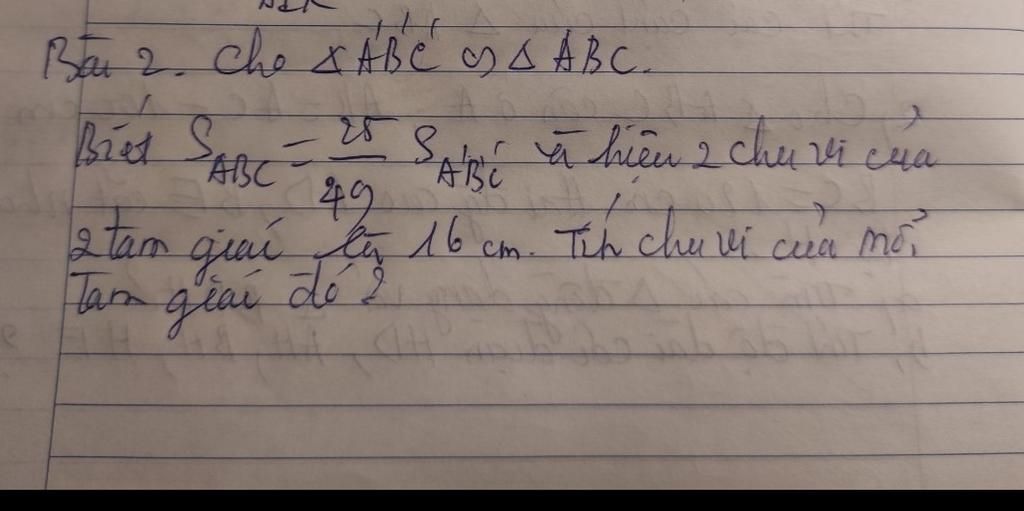 Bài 2. Cho △A'B'C' ∽ △ABC.
Biết S_ABC = 25/49 S_A'B'C' và hiệu 2 chu vi của
2 tam giác là 16 cm. Tính chu vi của mỗi
Tam giác đó?